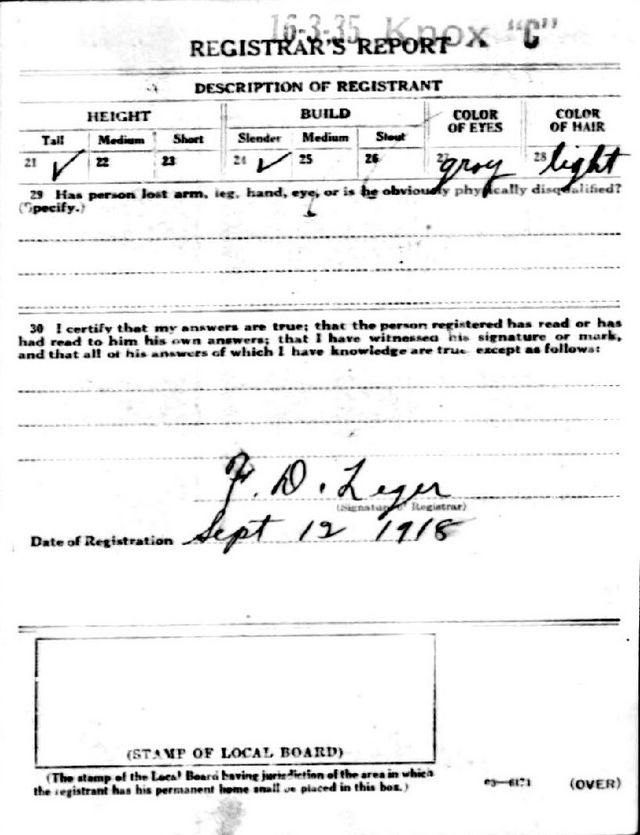 16-3-35 Knox "C"
REGISTRAR'S REPORT
DESCRIPTION OF REGISTRANT
HEIGHT BUILD COLOR OF EYES COLOR OF HAIR
Tall Medium Short Slender Medium Stout
21 ✓ 22 23 24 ✓ 25 26 27 gray 28 light
29 Has person lost arm, leg, hand, eye, or is he obviously physically disqualified?
(Specify.)
30 I certify that my answers are true; that the person registered has read or has
had read to him his own answers; that I have witnessed his signature or mark,
and that all of his answers of which I have knowledge are true except as follows:
F. D. Leger
(Signature of Registrar)
Date of Registration Sept 12 1918
(STAMP OF LOCAL BOARD)
(The stamp of the Local Board having jurisdiction of the area in which
the registrant has his permanent home shall be placed in this box.)
03—6171 (OVER)